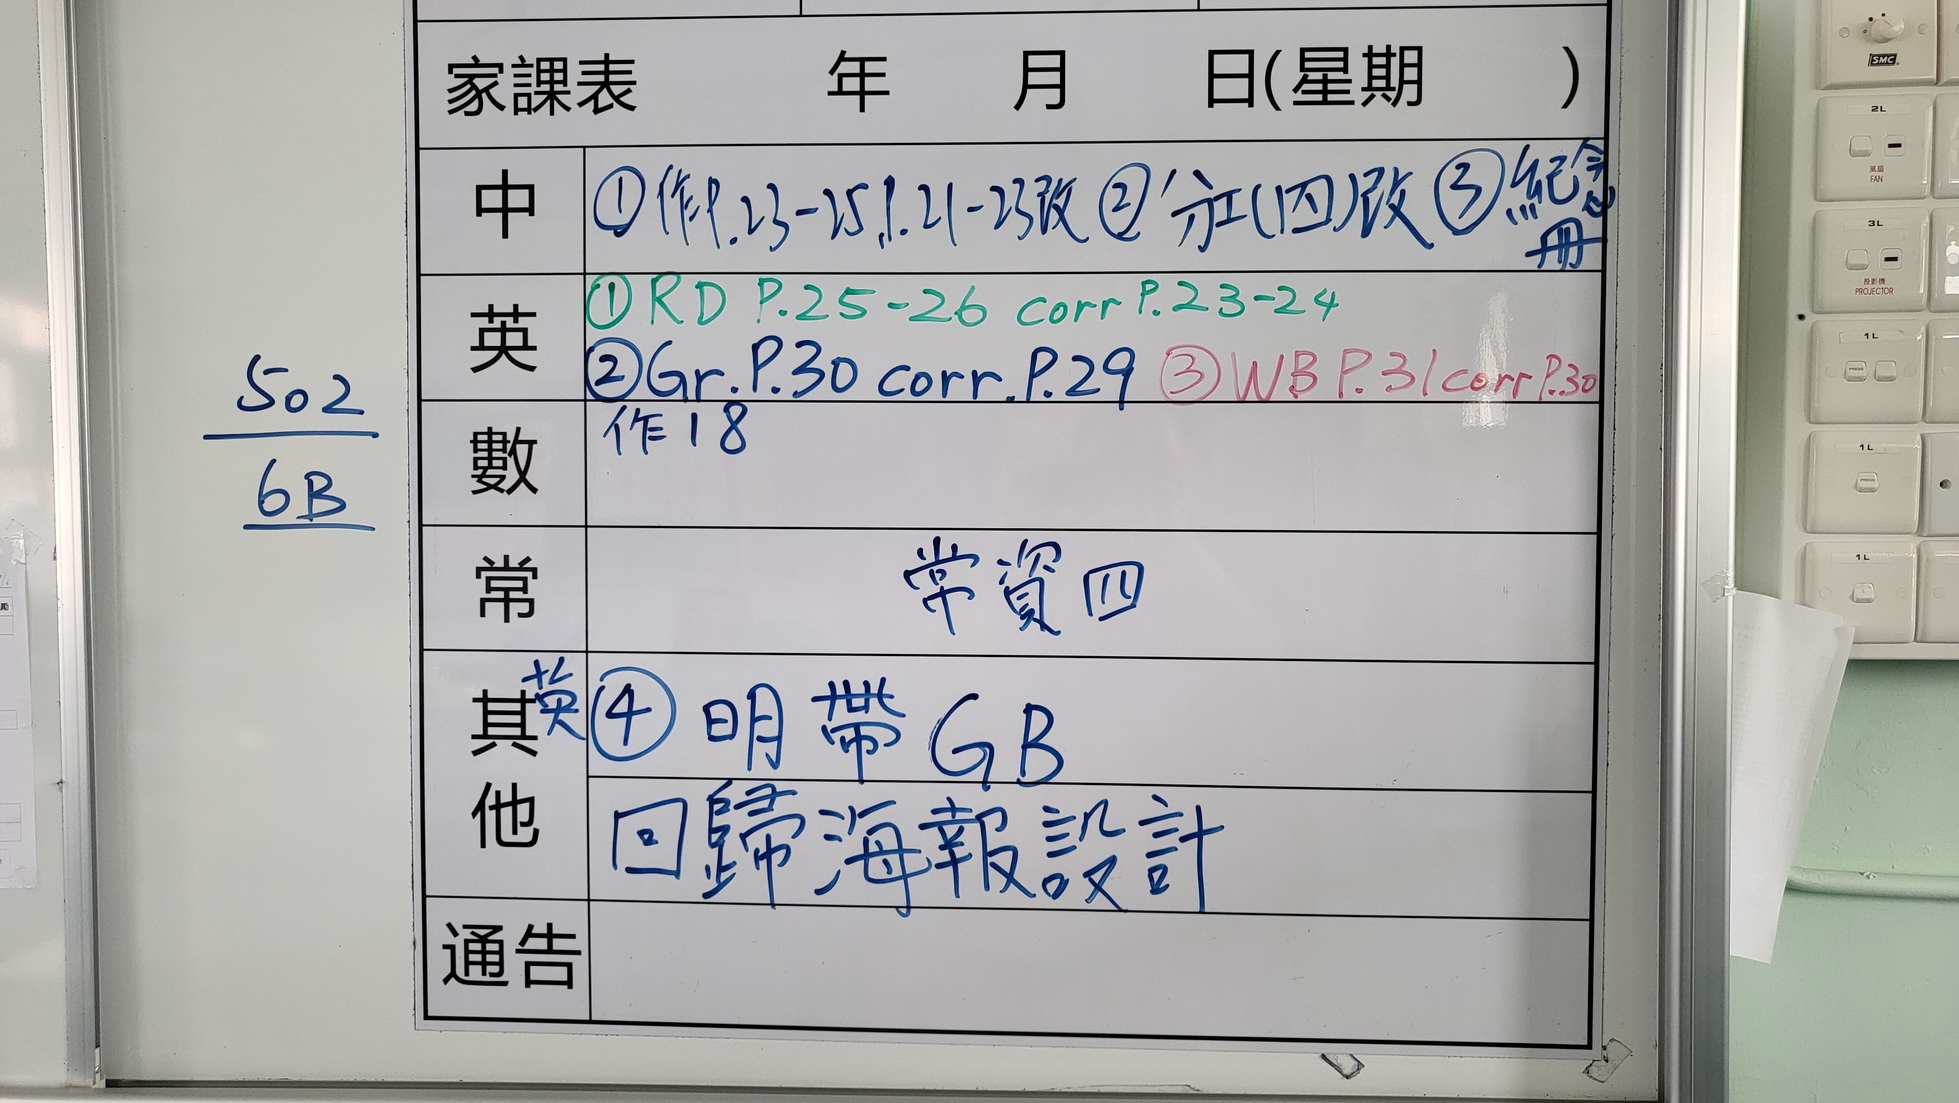 家課表 年 月 日(星期 )
中 ①作P.23-25 P.21-23改 ② (四)改 ③紀念冊
英 ①RD P.25-26 corr P.23-24
②Gr.P.30 corr.P.29 ③WB P.31 corr P.30
數 作18
常 常資四
其他 英④ 明帶GB
回歸海報設計
通告
502
6B
SMC
2L
風扇
FAN
3L
投影機
PROJECTOR
1L
1L
1L